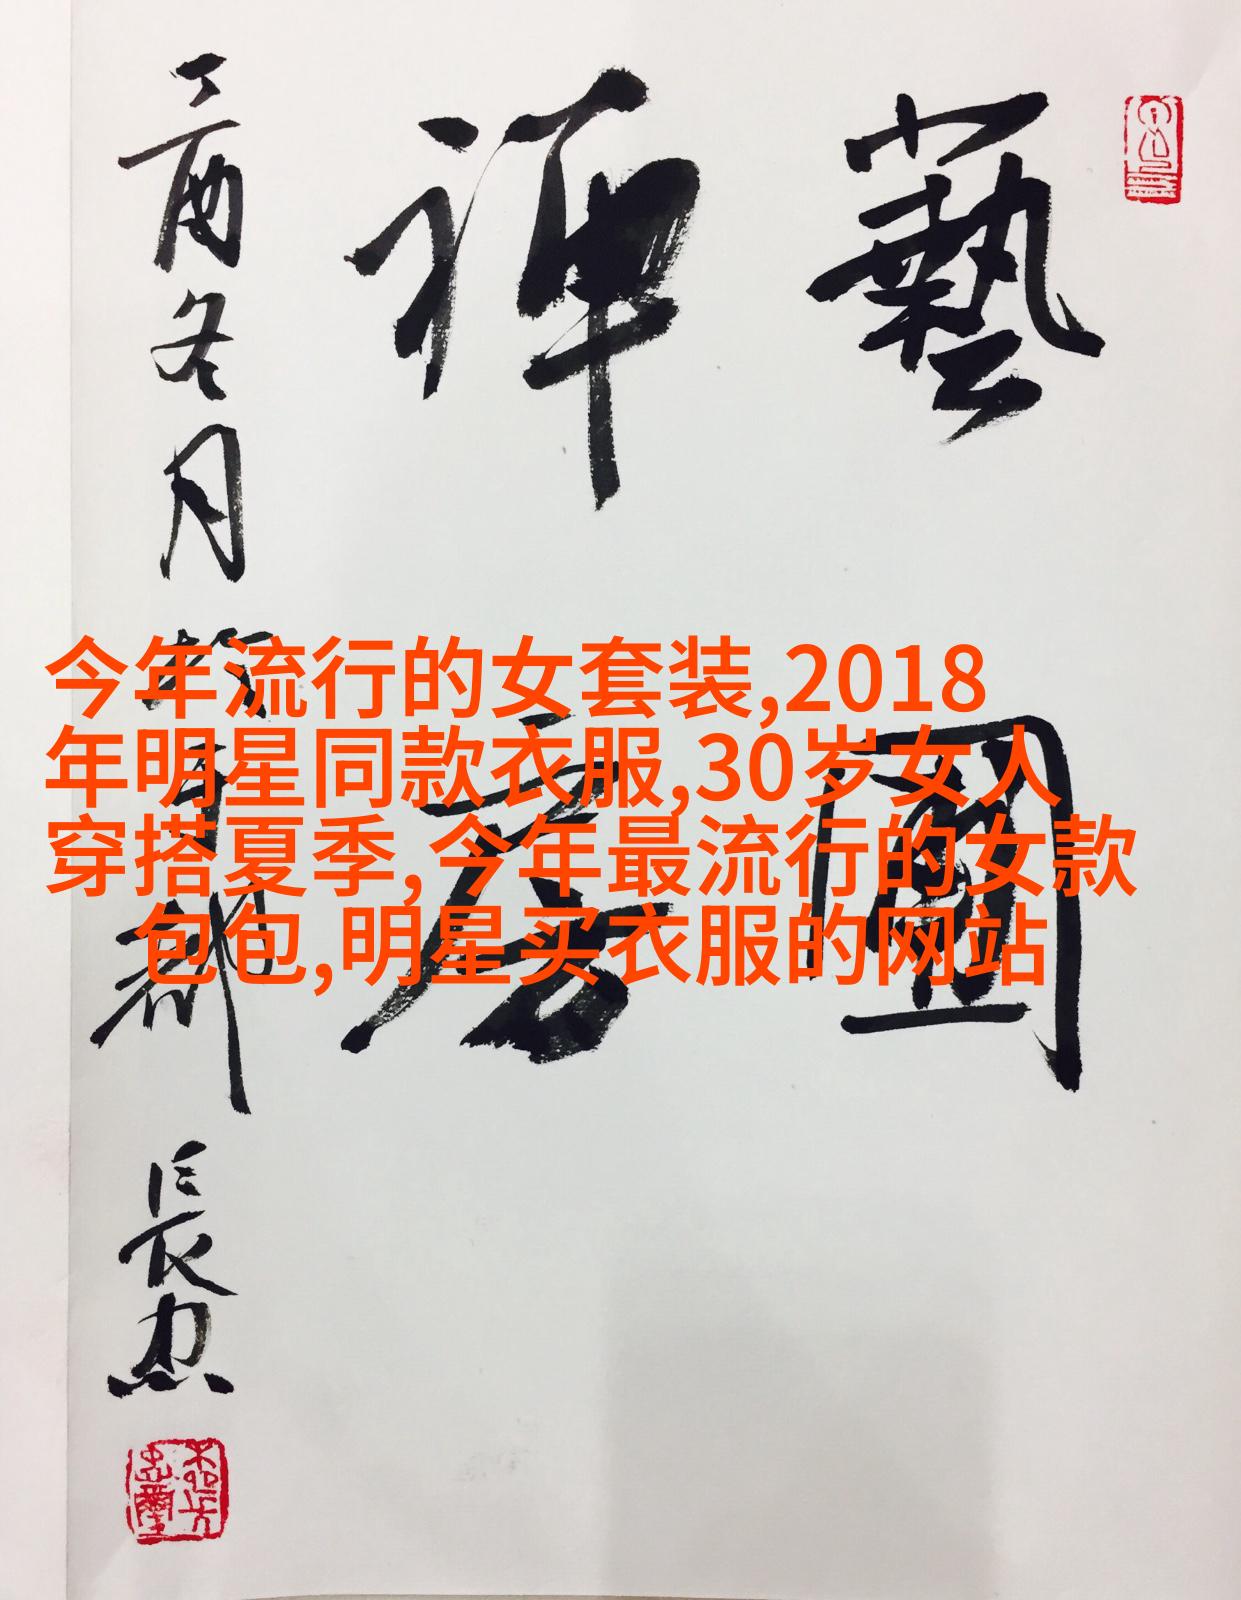 藝
禪房
丁酉冬月
長
今年流行的女套装,2018
年明星同款衣服,30岁女人
穿搭夏季,今年最流行的女款
包包,明星买衣服的网站